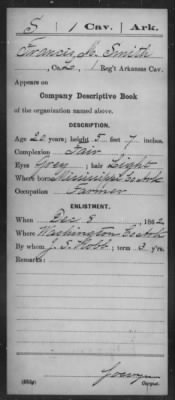 S | 1 Cav. | Ark.
Francis M. Smith
Co. L, 1 Reg't Arkansas Cav.
Appears on
Company Descriptive Book
of the organization named above.
DESCRIPTION.
Age 20 years; height 5 feet 7 inches.
Complexion Fair
Eyes Grey; hair Light
Where born Mississippi Co Ark
Occupation Farmer
ENLISTMENT.
When Dec 8, 1862
Where Washington Co Ark
By whom J. S. Robb; term 3 y'rs.
Remarks:
Copyist.